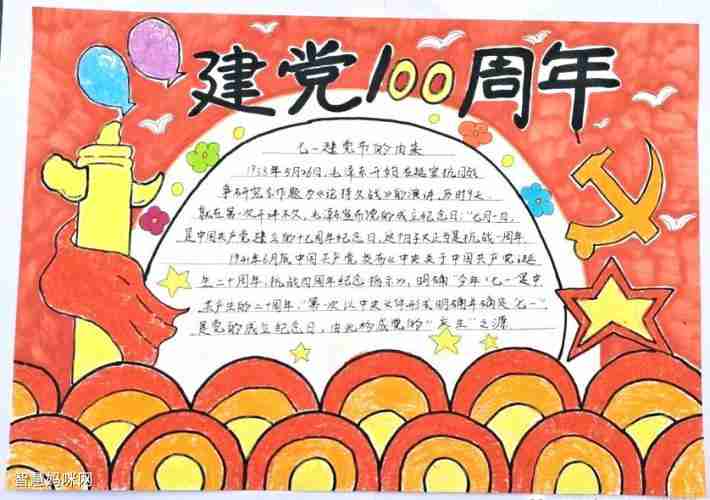 建党100周年
七一建党节的由来
1938年5月26日,毛泽东开始在延安抗日战
争研究会作题为《论持久战》的演讲,历时9天。
就在第一次干讲不久,毛泽东宣布党的成立纪念日:"七月一日,
是中国共产党建立的十七周年纪念日,这个日子又正当是抗战一周年。
1941年6月底中国共产党发布《中央关于中国共产党诞
生二十周年,抗战四周年纪念指示》,明确"今年七一是中
共产生的二十周年,"第一次以中央文件形式明确年确定"七一"
是党的成立纪念日,由此构成党的"产生"之源
智慧妈咪网